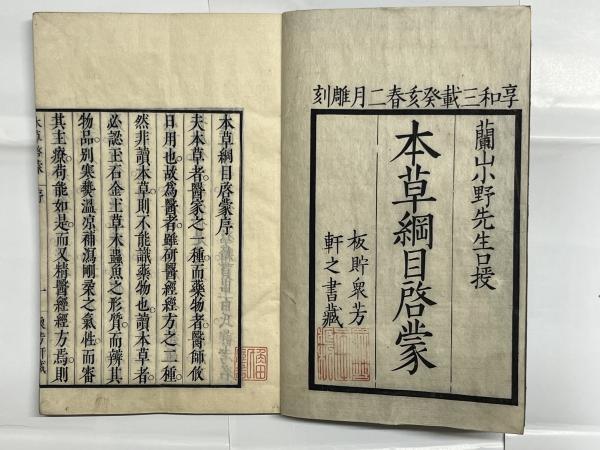 享和三載癸亥春二月雕刻
蘭山小野先生口授
本草綱目啓蒙
板貯衆芳
軒之書藏
本草綱目啓蒙序
夫本草者醫家之一種而藥物者醫師攸
日用也故爲醫者雖研醫經經方之二種
然非讀本草則不能識藥物也讀本草者
必認玉石金土草木蟲魚之形質而辨其
物品別寒熱溫凉補瀉剛柔之氣性而審
其主療苟能如是而又精醫經經方焉則
本草啓蒙 序
一
衆芳軒藏